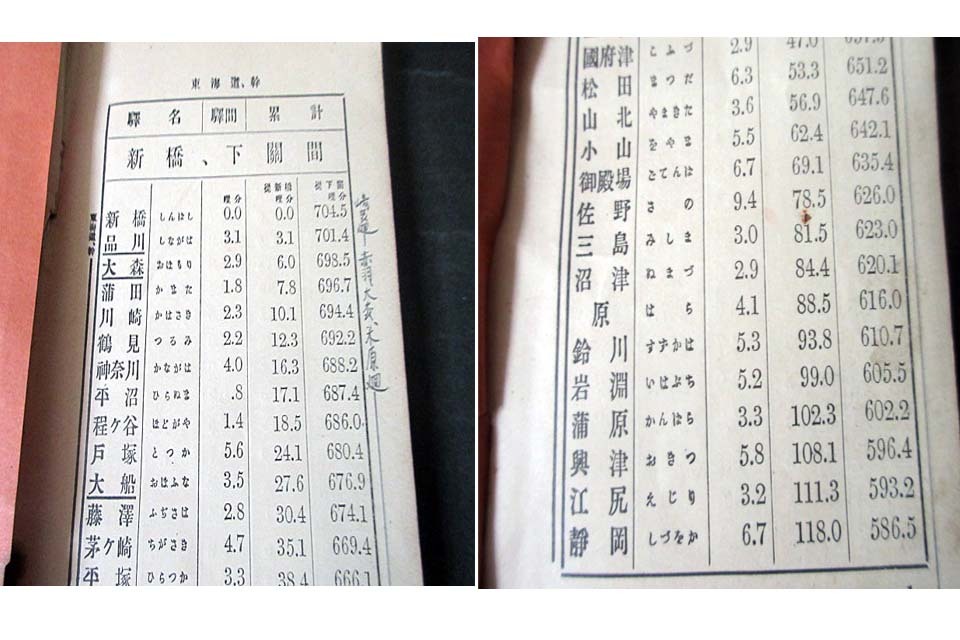 東海道、幹
驛名 驛間 累計
新橋、下關間
從新橋 從下關
哩分 哩分 哩分
新橋 しんはし 0.0 0.0 704.5
品川 しながは 3.1 3.1 701.4
大森 おほもり 2.9 6.0 698.5
蒲田 かまた 1.8 7.8 696.7
川崎 かはさき 2.3 10.1 694.4
鶴見 つるみ 2.2 12.3 692.2
神奈川 かながは 4.0 16.3 688.2
平沼 ひらぬま .8 17.1 687.4
程ケ谷 ほどがや 1.4 18.5 686.0
戸塚 とつか 5.6 24.1 680.4
大船 おほふな 3.5 27.6 676.9
藤澤 ふぢさは 2.8 30.4 674.1
茅ケ崎 ちがさき 4.7 35.1 669.4
平塚 ひらつか 3.3 38.4 666.1
東海道、幹
國府津 こふづ 2.9 47.0
松田 まつだ 6.3 53.3 651.2
山北 やまきた 3.6 56.9 647.6
小山 をやま 5.5 62.4 642.1
御殿場 ごてんば 6.7 69.1 635.4
佐野 さの 9.4 78.5 626.0
三島 みしま 3.0 81.5 623.0
沼津 ぬまづ 2.9 84.4 620.1
原 はら 4.1 88.5 616.0
鈴川 すずかは 5.3 93.8 610.7
岩淵 いはぶち 5.2 99.0 605.5
蒲原 かんばら 3.3 102.3 602.2
興津 おきつ 5.8 108.1 596.4
江尻 えじり 3.2 111.3 593.2
靜岡 しづをか 6.7 118.0 586.5